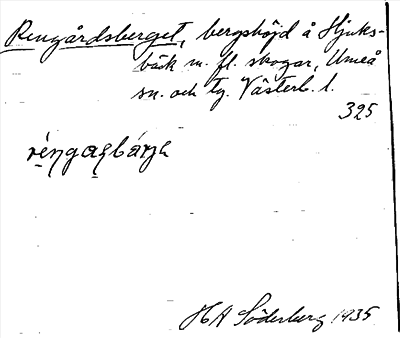 Rengårdsberget, bergshöjd å Hjuks-
bäck m. fl. skogar, Umeå
sn. och tg. Västerb. l.
325
HA Söderberg 1935